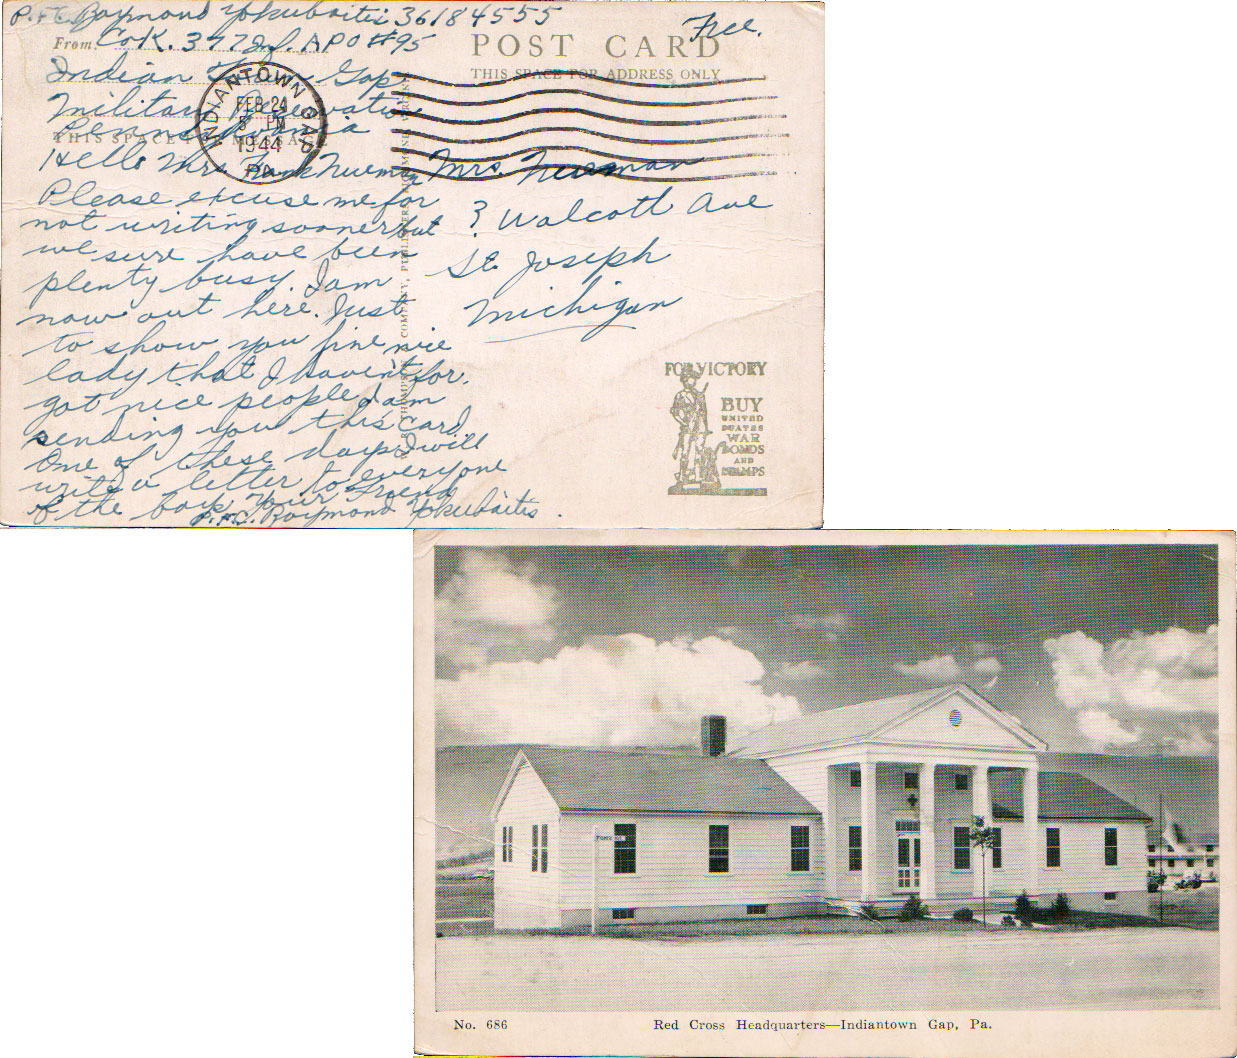 P.F.C. Raymond Yokubaitis 36184555
From: Co K. 377 Inf. APO #95
Indian Town Gap
Military Reservation
Pennsylvania
THIS SPACE FOR MESSAGE
Hello Mrs. Frank Newman
Please excuse me for
not writing sooner but
we sure have been
plenty busy. I am
now out here. Just
to show you fine nice
lady that I haven't for.
got nice people I am
sending you this card
One of these days I will
write a letter to everyone
of the boys Your Friend
P.F.C. Raymond Yokubaitis.
Free.
POST CARD
THIS SPACE FOR ADDRESS ONLY
INDIANTOWN GAP
FEB 24
5 PM
1944
PA.
Mrs. Newman
? Walcott Ave
St. Joseph
Michigan
FOR VICTORY
BUY
UNITED
STATES
WAR
BONDS
AND
STAMPS
No. 686
Red Cross Headquarters—Indiantown Gap, Pa.